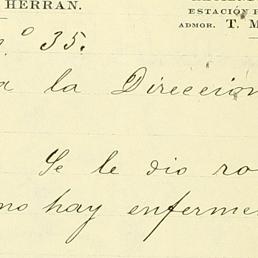 HERRAN.
ESTACIÓN
ADMOR. T. M
n.º 35.
a la Direccion
Se le dio ro
no hay enferme